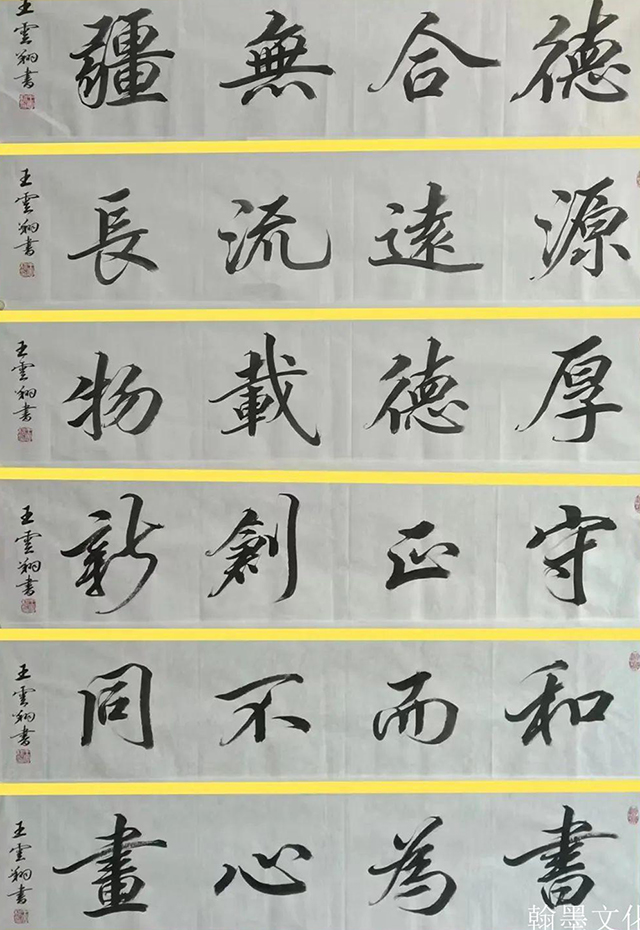 德合無疆
王雲翔書
源遠流長
王雲翔書
厚德載物
王雲翔書
守正創新
王雲翔書
和而不同
王雲翔書
書為心畫
王雲翔書
翰墨文化